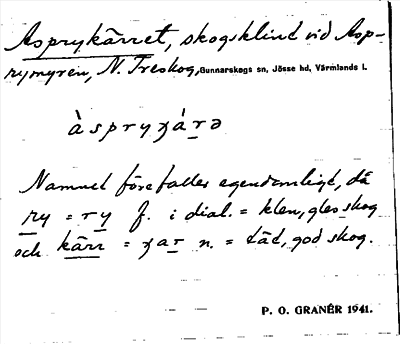 Asprykärret, skogsklind vid Asp-
rymyren, N. Treskog, Gunnarskogs sn, Jösse hd, Värmlands l.
àspryɣàrə
Namnet förefaller egendomligt, då
ry = ry f. i dial. = klen, gles skog
och kärr = ɣar n. = tät, god skog.
P. O. GRANÉR 1941.